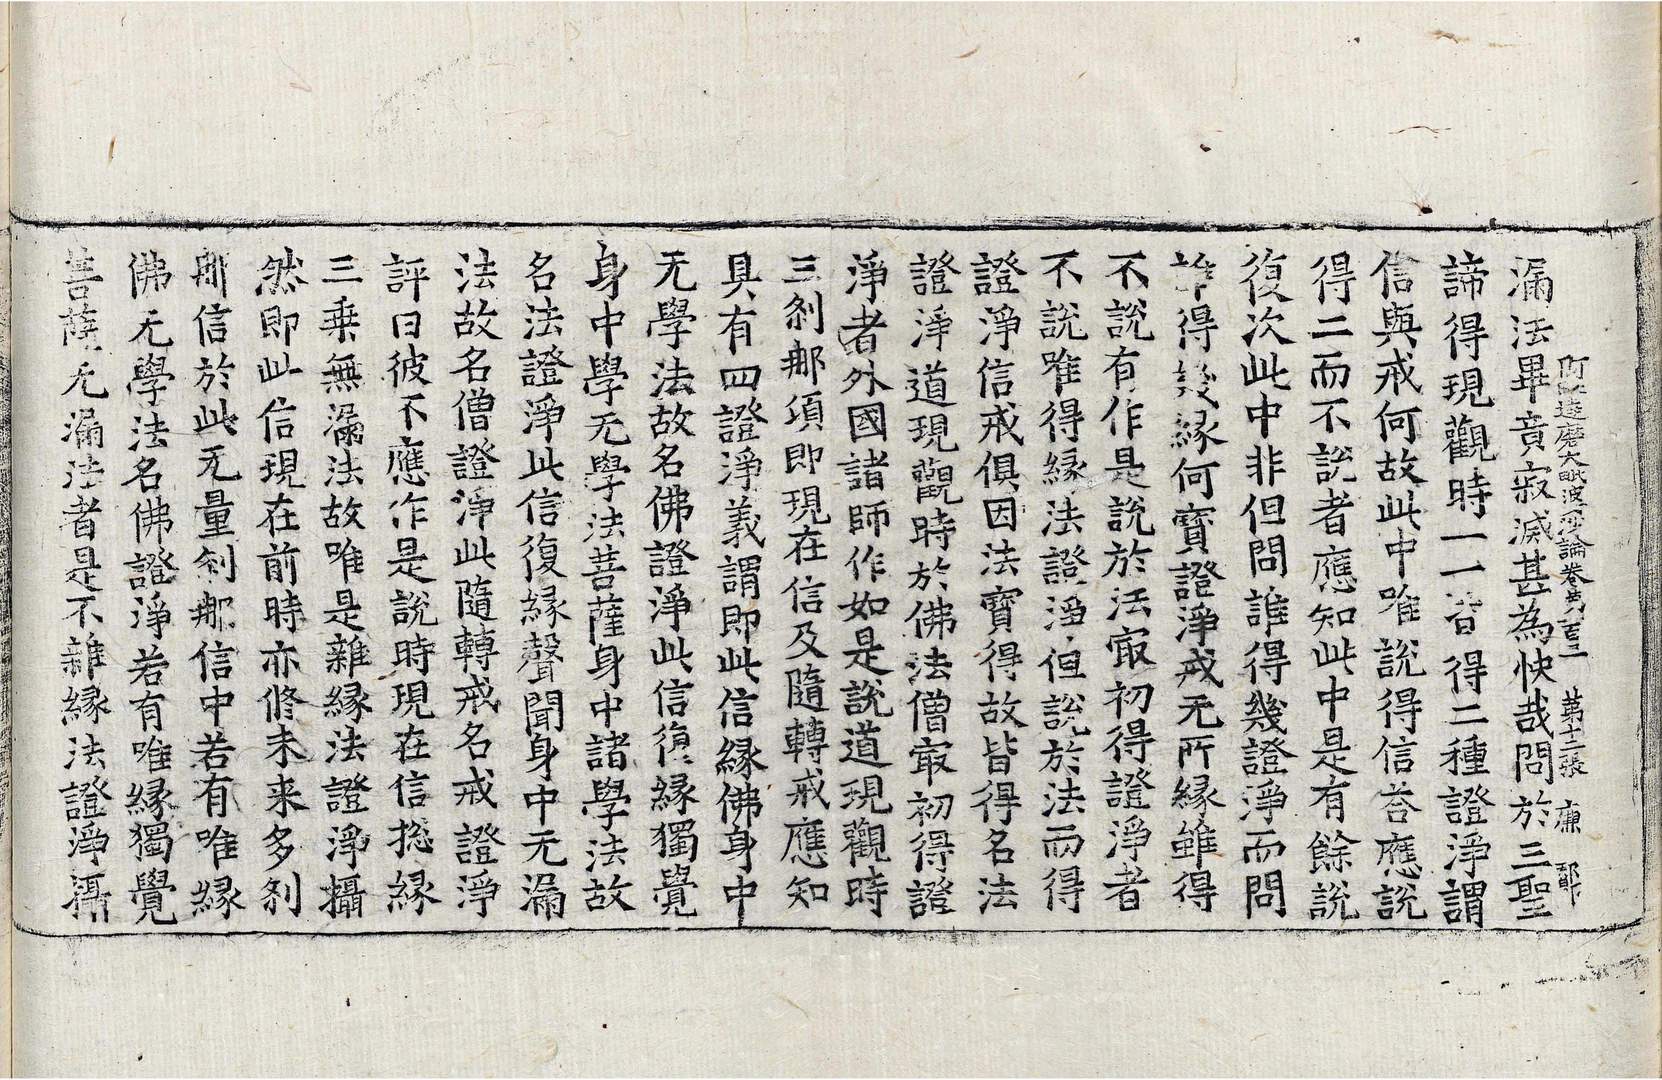 阿毗達磨大毗婆沙論卷苐一百三 苐十二張 廉
漏法畢竟寂滅甚為快㢤問於三聖
諦得現觀時一一皆得二種證淨謂
信與戒何故此中唯說得信荅應說
得二而不說者應知此中是有餘說
復次此中非但問誰得幾證淨而問
誰得幾緣何寶證淨戒无所緣雖得
不說有作是說於法㝡初得證淨者
不說唯得緣法證淨但說於法而得
證淨信戒俱因法寶得故皆得名法
證淨道現觀時於佛法僧㝡初得證
淨者外國諸師作如是說道現觀時
三剎那頃即現在信及隨轉戒應知
具有四證淨義謂即此信緣佛身中
无學法故名佛證淨此信復緣獨覺
身中學无學法菩薩身中諸學法故
名法證淨此信復緣聲聞身中无漏
法故名僧證淨此隨轉戒名戒證淨
評曰彼不應作是說時現在信㧾緣
三乘無漏法故唯是雜緣法證淨攝
然即此信現在前時亦修未来多剎
那信於此无量剎那信中若有唯緣
佛无學法名佛證淨若有唯緣獨覺
菩薩无漏法者是不雜緣法證淨攝